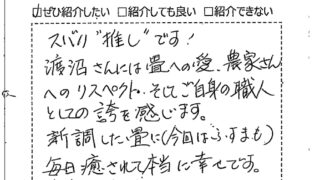 ☑ぜひ紹介したい □紹介しても良い □紹介できない
ズバリ“推し”です!
渡沼さんには畳への愛、農家さん
へのリスペクト、そしてご自身の職人
としての誇を感じます。
新調した畳に(今回はふすまも)
毎日癒されて本当に幸せです。